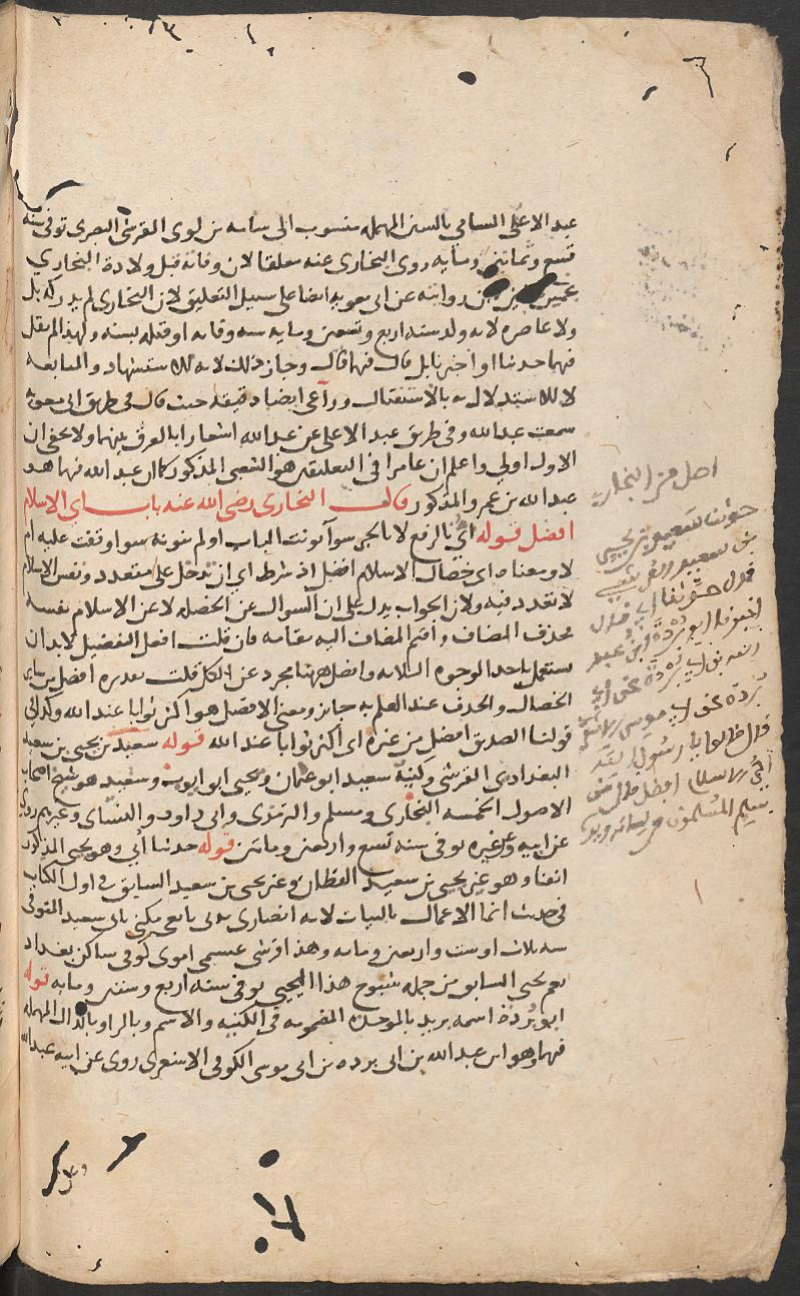 عبد الاعلى السامي بالسين المهمله منسوب الى سامه بن لوى القرشى البصرى توفى سنه
تسع وثمانين ومايه روى البخارى عنه معلقا لان وفاته قبل ولادة البخارى
بخمس روايته عن ابى معويه ايضا على سبيل التعليق لان البخارى لم يدركه بل
ولا عاصره لانه ولد سنه اربع وتسعين ومايه سنه وفاته او قبله بسنه ولهذا لم يقل
فيهما حدثنا او اخبرنا بل قال فيها قال وجاز ذلك لانه للاستشهاد والمتابعه
لا للاستدلال به بالاستقلال وراعى ايضا دقيقه حيث قال فى طريق ابى معويه
سمعت عبد الله وفى طريق عبد الاعلى عن عبد الله اشعارا بالفرق بينهما ولا يخفى ان
الاول اولى واعلم ان عامرا فى التعليقين هو الشعبى المذكور كما ان عبد الله فيهما هو
عبد الله بن عمرو المذكور قال البخارى رضى الله عنه باب اى الاسلام
افضل قوله اى بالرفع لا بالجر سوآ نونت الباب او لم تنونه سوا وقفت عليه ام
لا ومعناه اى خصال الاسلام افضل اذ شرط اى ان تدخل على متعدد ونفس الاسلام
لا تعدد فيه ولان الجواب يدل على ان السوال عن الخصله لا عن الاسلام نفسه
محذف المضاف واقيم المضاف اليه مقامه فان قلت افعل التفضيل لابد ان
يستعمل باحد الوجوه الثلاثه وافضل ههنا مجرد عن الكل قلت تقديره افضل من ساير
الخصال والحذف عند العلم به جايز ومعنى الافضل هو اكثر ثوابا عند الله وكذلك
قولنا الصديق افضل من غيره اى اكثر ثوابا عند الله قوله سعيد بن يحيى بن سعيد
البغدادى القرشى وكنية سعيد ابو عثمان ويحيى ابو ايوب وسعيد هو شيخ اصحاب
الاصول الخمسه البخارى ومسلم والترمذى وابى داود والنساى وغيرهم روى
عن ابيه وغيره توفى سنه تسع واربعين ومايتين قوله حدثنا أبي وهو يحيى المذكور
انفا وهو غير يحيى بن سعيد القطان وغير يحيى بن سعيد السابق فى اول الكتاب
فى حديث انما الاعمال بالنيات لانه انصارى مدنى تابعى يكنى بابى سعيد المتوفى
سنه ثلاث او ست واربعين ومايه وهذا قرشى اموى كوفى ساكن بغداد
نعم يحيى السابق من جمله شيوخ هذا اليحيى توفى سنه اربع وستين ومايه قوله
ابو بُردة اسمه بريد بالموحده المضمومه فى الكنيه والاسم وبالراو بالدال المهمله
فيهما وهو ابن عبد الله بن ابى برده بن ابى موسى الكوفى الاشعرى روى عن ابيه عبد الله
اصل متن البخارى
حدثنا سعيد بن يحيى
بن سعيد القرشى
قال حدثنا ابى قال
ابو بردة ابن عبد
الله بن ابى بردة عن ابى
بُردة عن ابى موسى
قال قالوا يا رسول الله
اىُّ الاسلام افضل قال من
سلم المسلمون من لسانه ويده